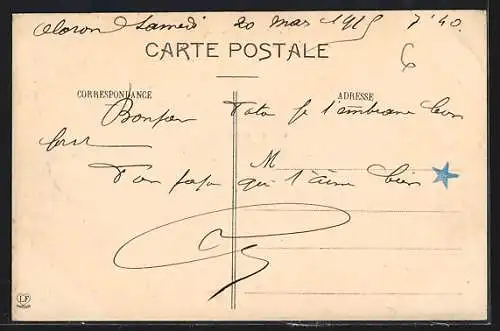 Oloron Samedi 20 mars 1915 7h40
CARTE POSTALE
6
CORRESPONDANCE
ADRESSE
Bonjour Tata je t'embrasse bien
fort
M
Ton papa qui t'aime bien